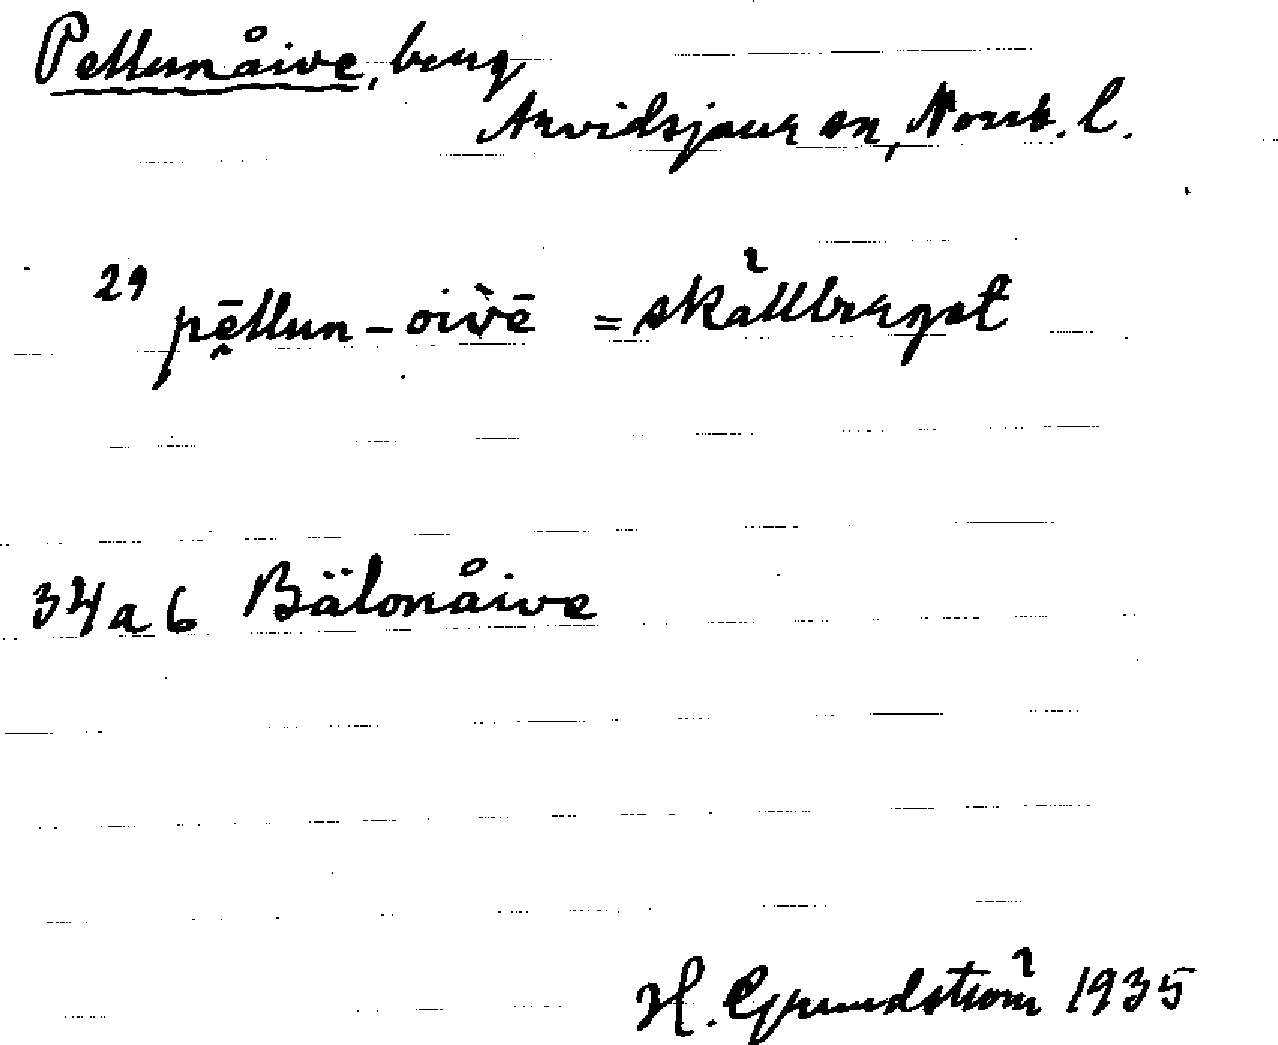 Pellunåive, berg
Arvidsjaur sn, Norrb. l.
29 pē̮llun-oi̯v̀ē = skällberget
34 a 6 Bälonåive
H. Grundström 1935